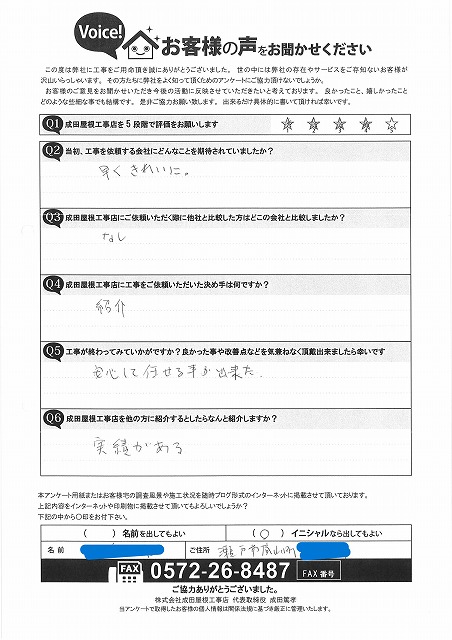 Voice!
お客様の声をお聞かせください
この度は弊社に工事をご用命頂き誠にありがとうございました。世の中には弊社の存在やサービスをご存知ないお客様が
沢山いらっしゃいます。その方たちに弊社をよく知って頂くためのアンケートにご協力頂けないでしょうか。
お客様のご意見をお聞かせいただき今後の活動に反映させていただきたいと考えております。良かったこと、嬉しかったこと
どのような些細な事でも結構です。是非ご協力お願い致します。出来るだけ具体的に書いて頂ければ幸いです。
Q1 成田屋根工事店を5段階で評価をお願いします
Q2 当初、工事を依頼する会社にどんなことを期待されていましたか？
早くきれいに。
Q3 成田屋根工事店にご依頼いただく際に他社と比較した方はどこの会社と比較しましたか？
なし
Q4 成田屋根工事店に工事をご依頼いただいた決め手は何ですか？
紹介
Q5 工事が終わってみていかがですか？良かった事や改善点などを気兼ねなく頂戴出来ましたら幸いです
安心して任せる事が出来た.
Q6 成田屋根工事店を他の方に紹介するとしたらなんと紹介しますか？
実績がある
本アンケート用紙またはお客様宅の調査風景や施工状況を随時ブログ形式のインターネットに掲載させて頂いております。
上記内容をインターネットや印刷物に掲載させて頂いてもよろしいでしょうか？
下記の中から〇印をお付下さい。
（ ）名前を出してもよい （〇）イニシャルなら出してもよい
名前 ご住所 瀬戸市
FAX 0572-26-8487 FAX番号
ご協力ありがとうございました。
株式会社成田屋根工事店 代表取締役 成田篤孝
当アンケートで取得したお客様の個人情報は関係法規に基づき厳正に管理いたします。